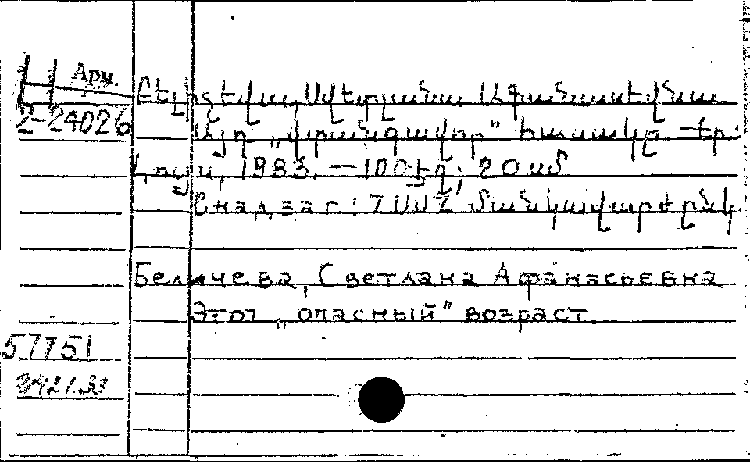 Арм.
2-24026
Բելիչևա, Սվետլանա Աֆանասևնա
Այդ „վտանգավոր" հասակը — Եր.:
Լույս, 1983. — 100 էջ; 20 սմ
Անադзаг.: ՀՍՍՀ մանկավարժընկ
Беличева, Светлана Афанасьевна
Этот „опасный" возраст.
57751